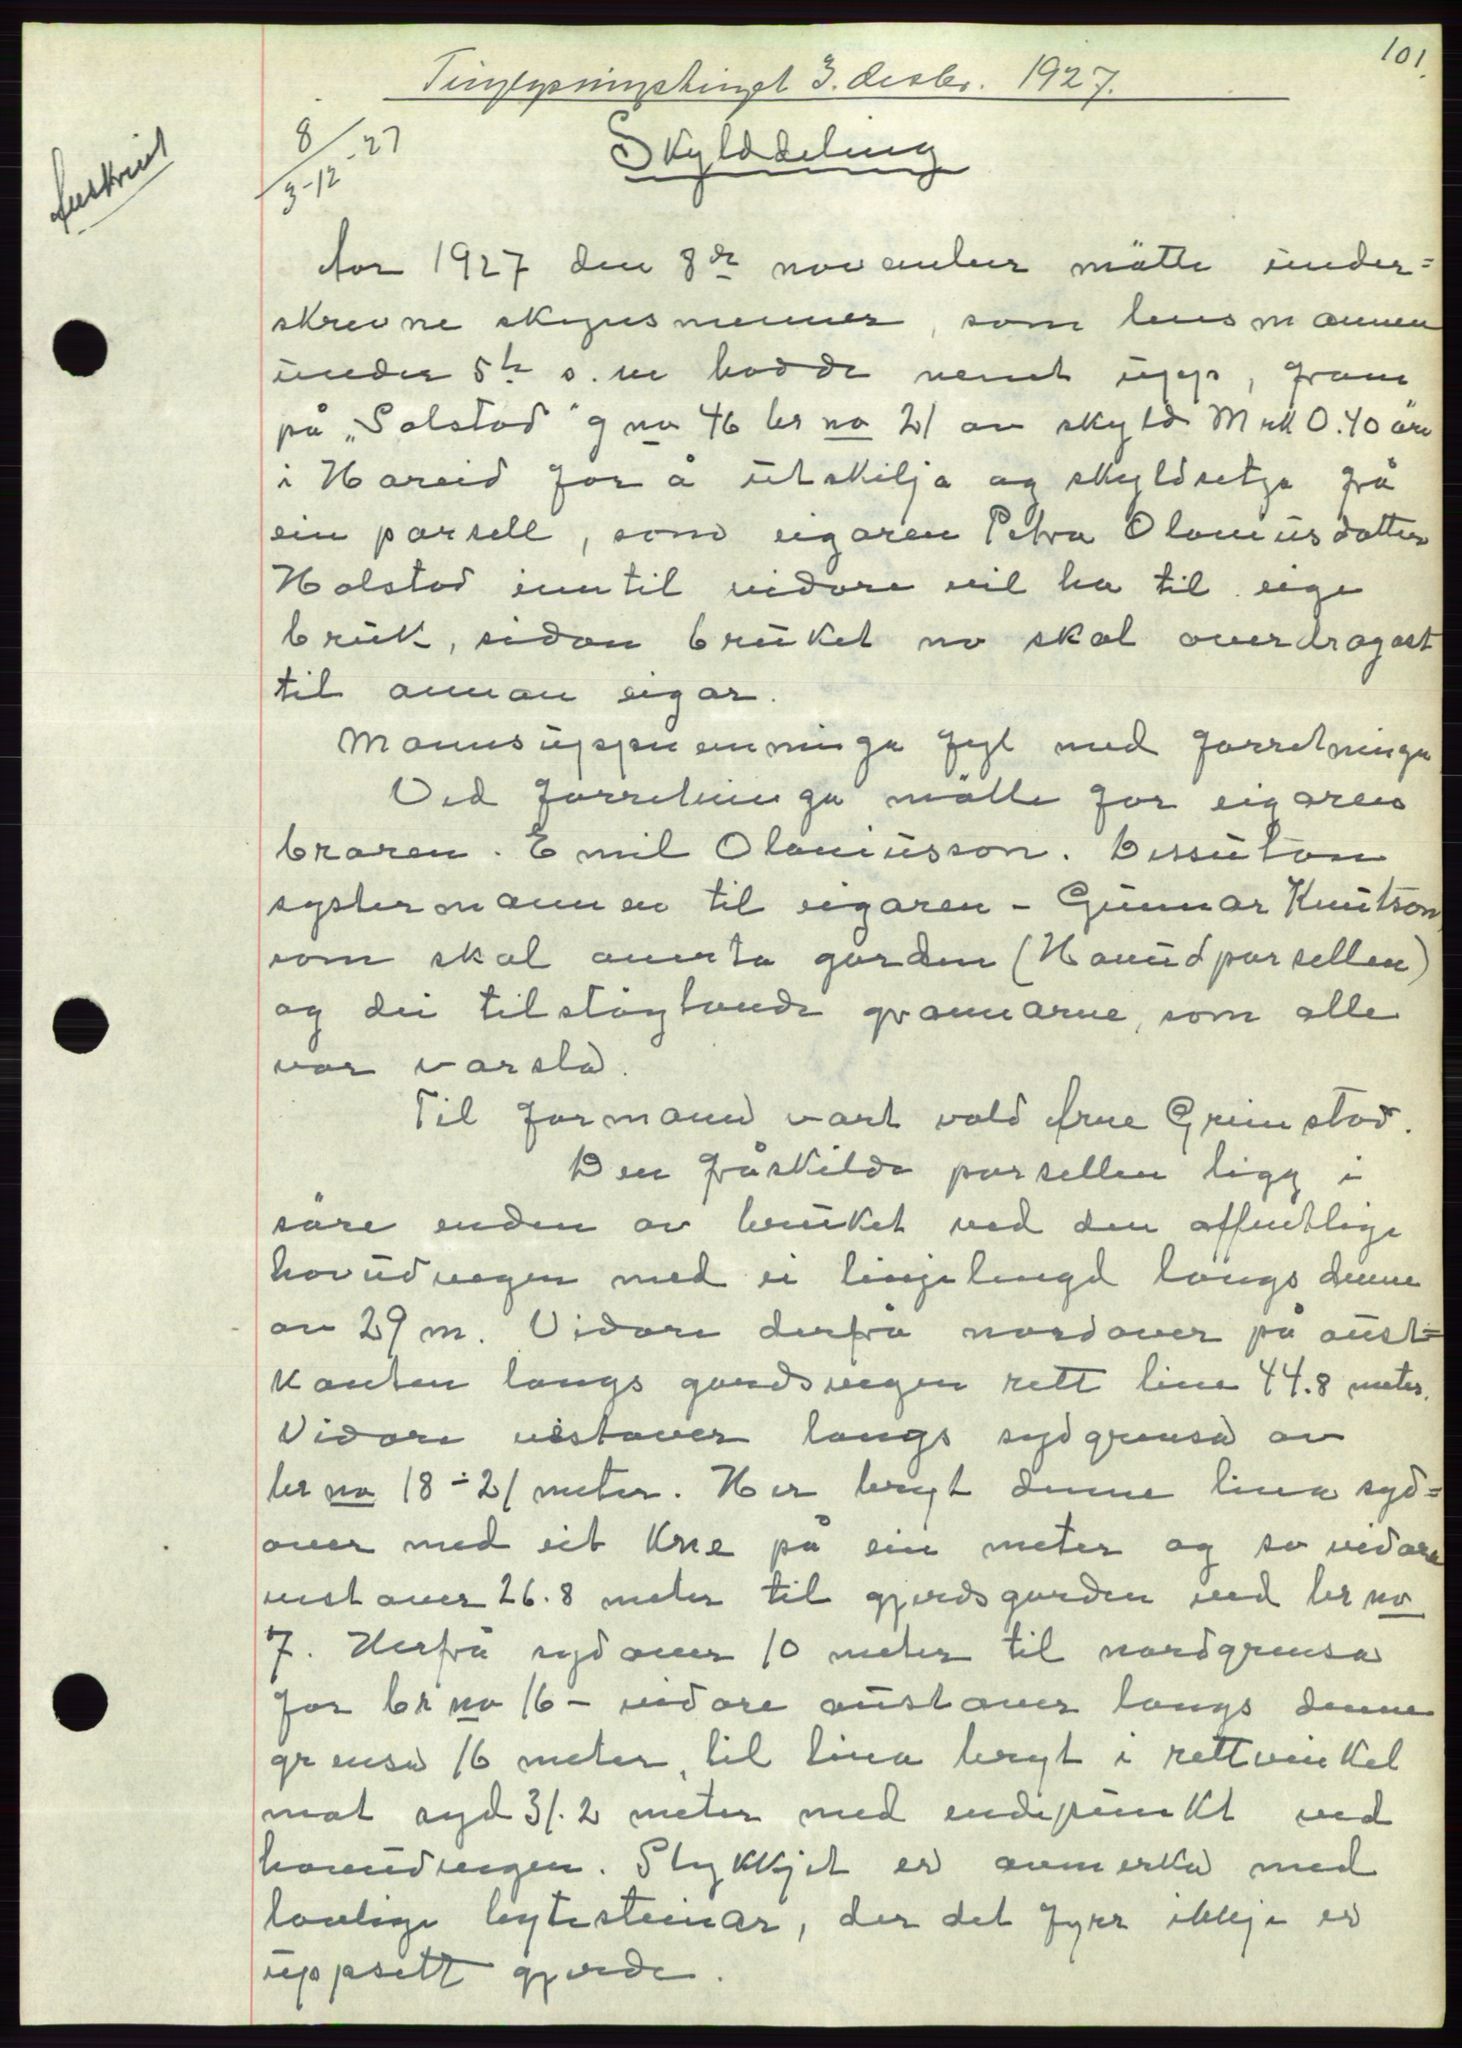 101.
Tinglysningstinget 3. desbr. 1927.
8/3-12-27
Avskrivt
Skylddeling
Aar 1927 den 8de november mötte under=
skrevne skjynsmenner, som lensmannen
under 5te s. m hadde nemt upp, fram
på "Solstad" g no 46 br no 21 av skyld Mrk 0.40 öre
i Hareid for å utskilja og skyldsetja frå
ein parsell, som eigaren Petra Olauiusdatter
Holstad inntil vidare vil ha til eige
bruk, sidan bruket no skal overdragast
til annan eigar.
Mannsuppnemninga fyl med forretninga
Ved forretninga mötte for eigaren
braren. Emil Olauiusson. Dessutan
systermannen til eigaren - Gunnar Knutson,
som skal averta garden (Hovudparsellen)
og dei tilstöytande grannarne, som alle
var varsla.
Til formand vart vald Arne Grimstad.
Den fråskilde parsellen ligg i
söre enden av bruket ved den offentlige
hovudvegen med ei linjelengd langs denne
av 29 m. Vidare derfrå nordover på aust=
kanten langs gardsvegen rett line 44.8 meter.
Vidare vestover langs sydgrensa av
br no 18 - 21 meter. Her bryt denne lina syd=
over med eit kne på ein meter og so vidare
vestover 26.8 meter til gjerdsgarden ved br no
7. Herfrå sydover 10 meter til nordgrensa
for br no 16 - vidare austover langs denne
grensa 16 meter, til lina bryt i rettvinkel
mot syd 31.2 meter med endepunkt ved
hovudvegen. Stykkjet er avmerka med
lovlige bytesteinar, der det fyrr ikkje er
uppsett gjerde.